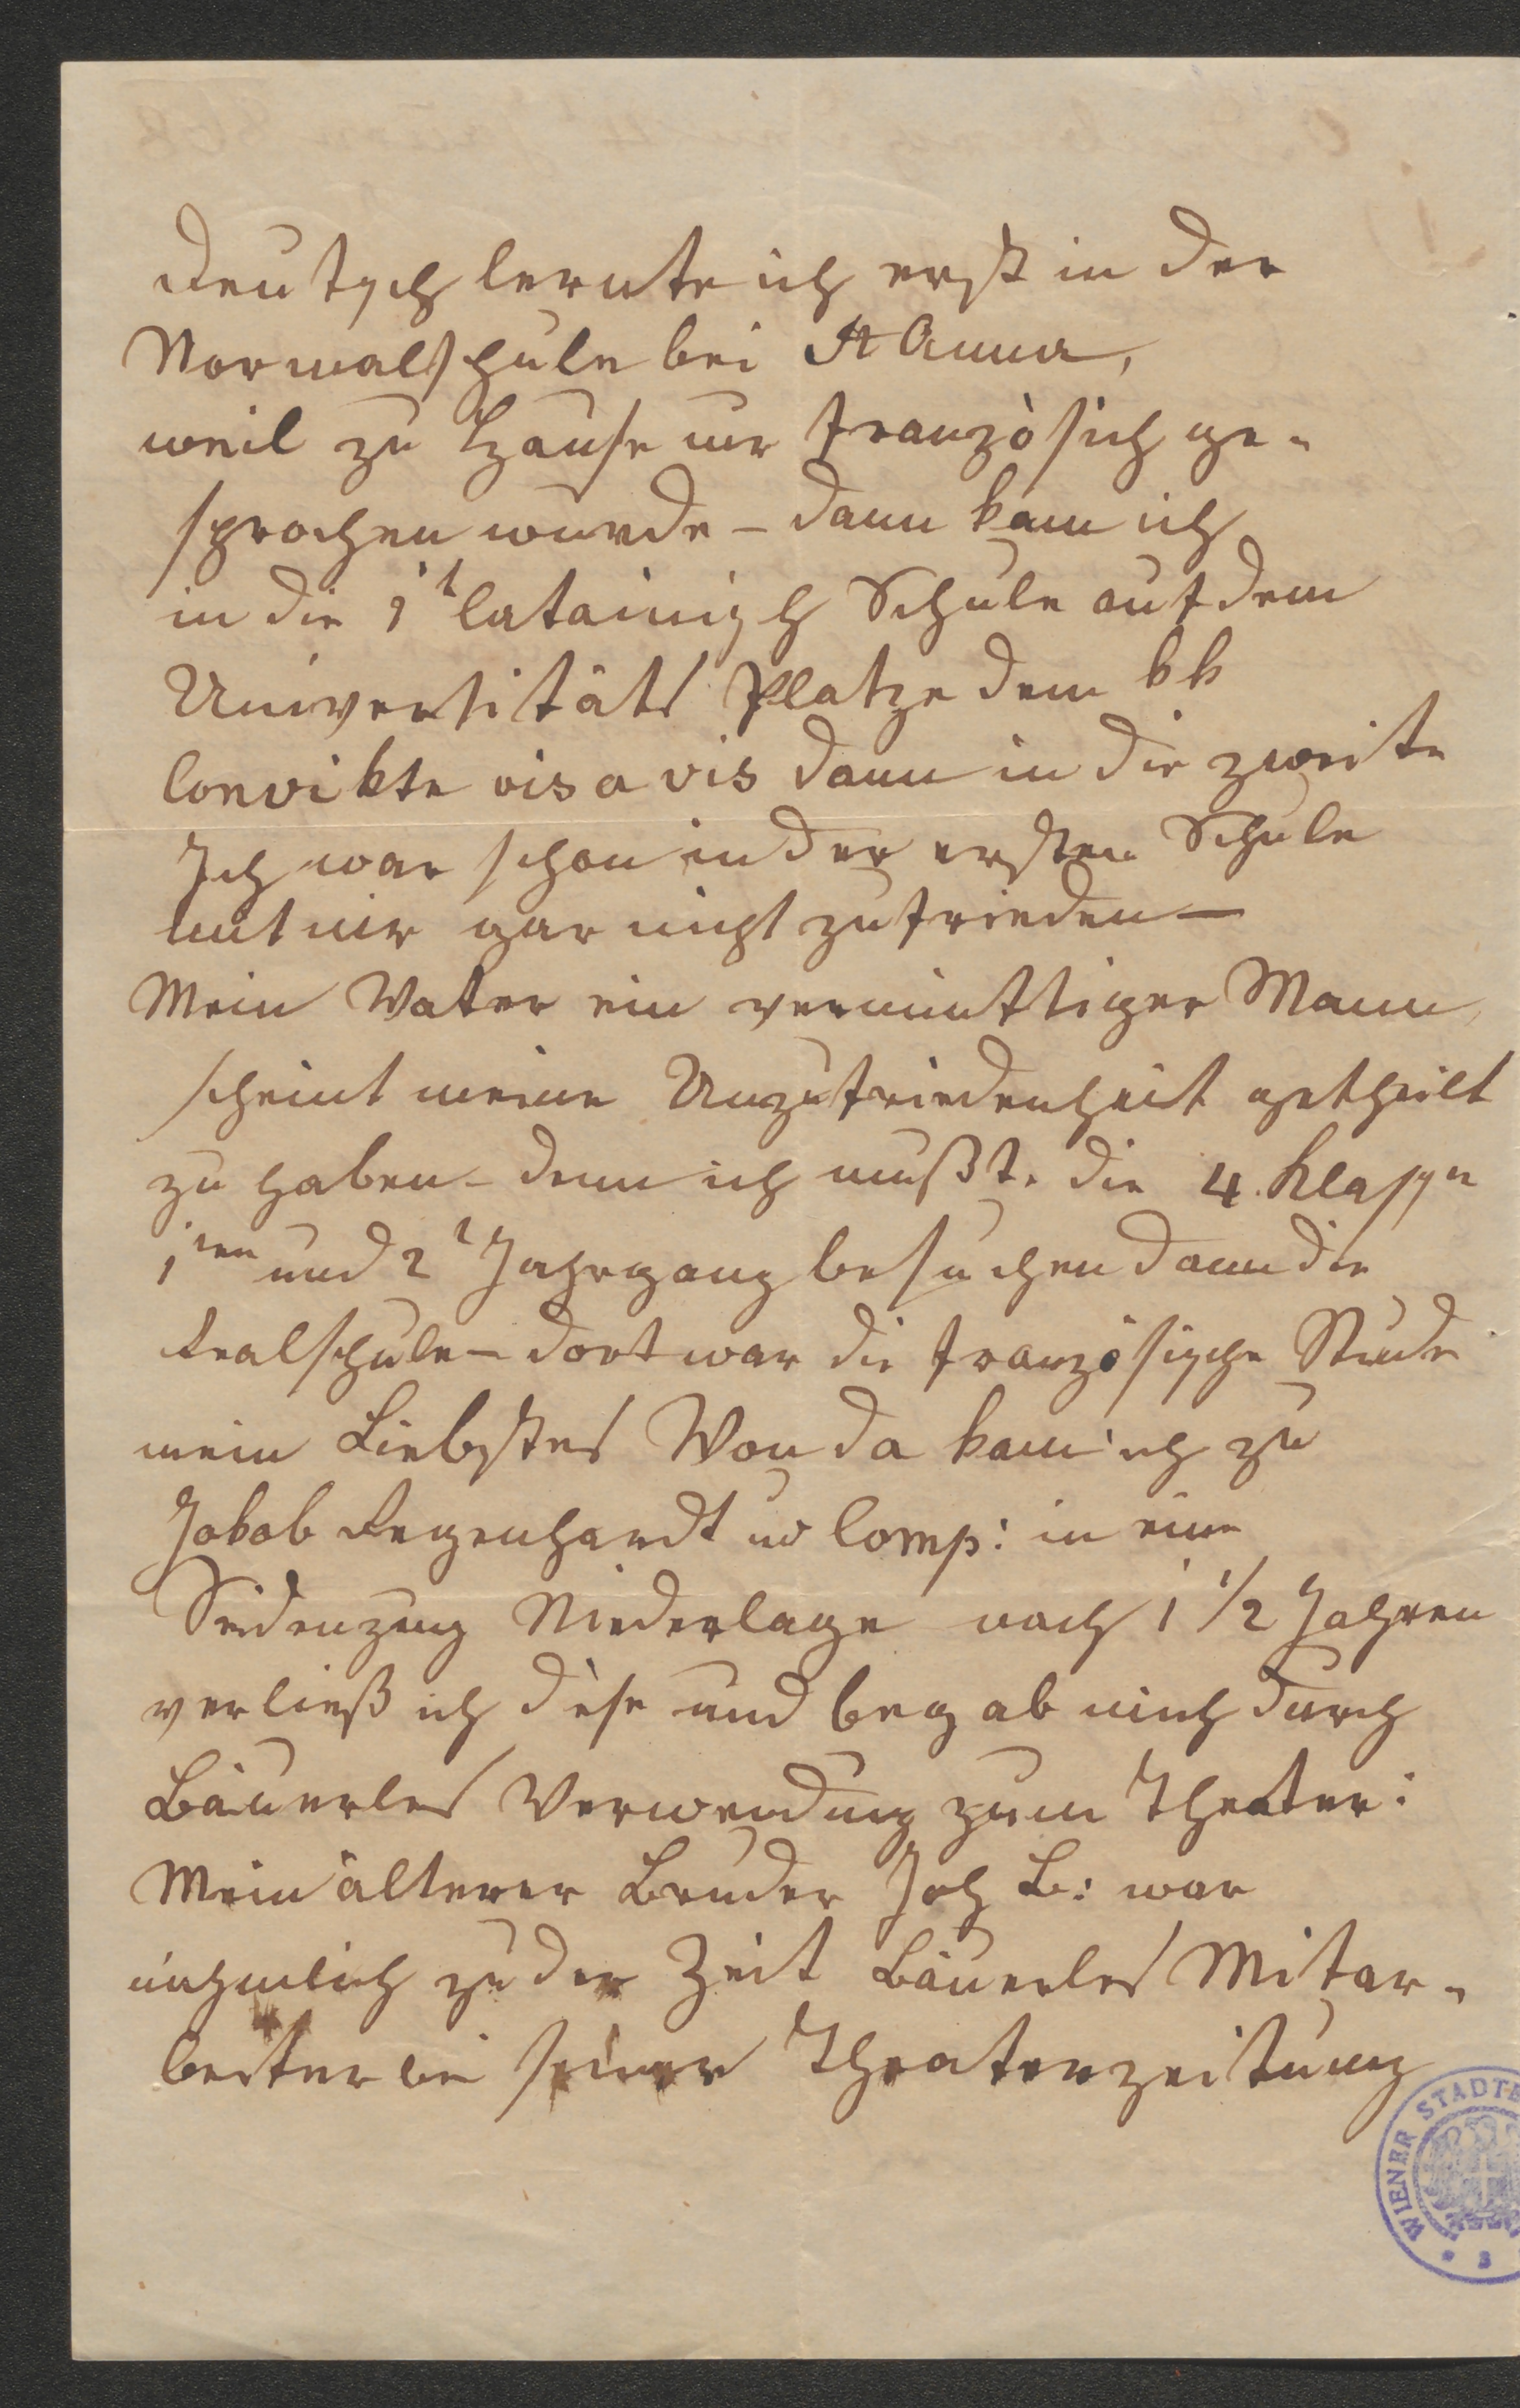 Deutsch lernte ich erst in der
Normalschule bei St Anna,
weil zu Hause nur französich ge-
sprochen wurde – dann kam ich
in die 1t lateinisch Schule auf dem
Universitäts Platze dem kk
Convikte vis a vis dann in die zweite
Ich war schon in der ersten Schule
mit mir gar nicht zufrieden –
Mein Vater ein vernünftiger Mann,
scheint meine Unzufriedenheit getheilt
zu haben – denn ich mußte die 4. Klasse
1ten und 2t Jahrgang besuchen dann die
Realschule – dort war die französische Stude
mein Liebstes Von da kam ich zu
Jakob Regenhardt u Comp: in eine
Seidenzeug Niederlage nach 1 1/2 Jahren
verließ ich diese und begab mich durch
Bäuerles Verwendung zum Theater:
Mein älterer Bruder Joh B: war
nähmlich zu der Zeit Bäuerles Mitar-
beiter bei seiner Theaterzeitung
WIENER STADTB